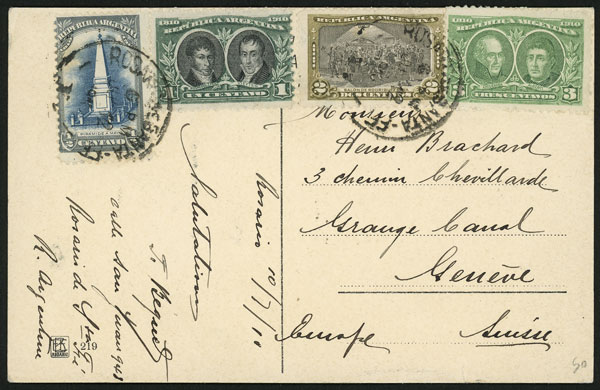 REPUBLICA ARGENTINA
CENTAVO
1810 1910
REPUBLICA ARGENTINA
1 UN CENTAVO 1
REPUBLICA ARGENTINA
1810 1910
REPUBLICA ARGENTINA
3 TRES CENTAVOS 3
Monsieur
Henri Brachard
3 chemin Chevillarde
Grange Canal
Genève
Europe Suisse
Rosario 10/7/10
Salutations
calle San Juan 948
Rosario de Sta Fé
R. Argentine
219
50